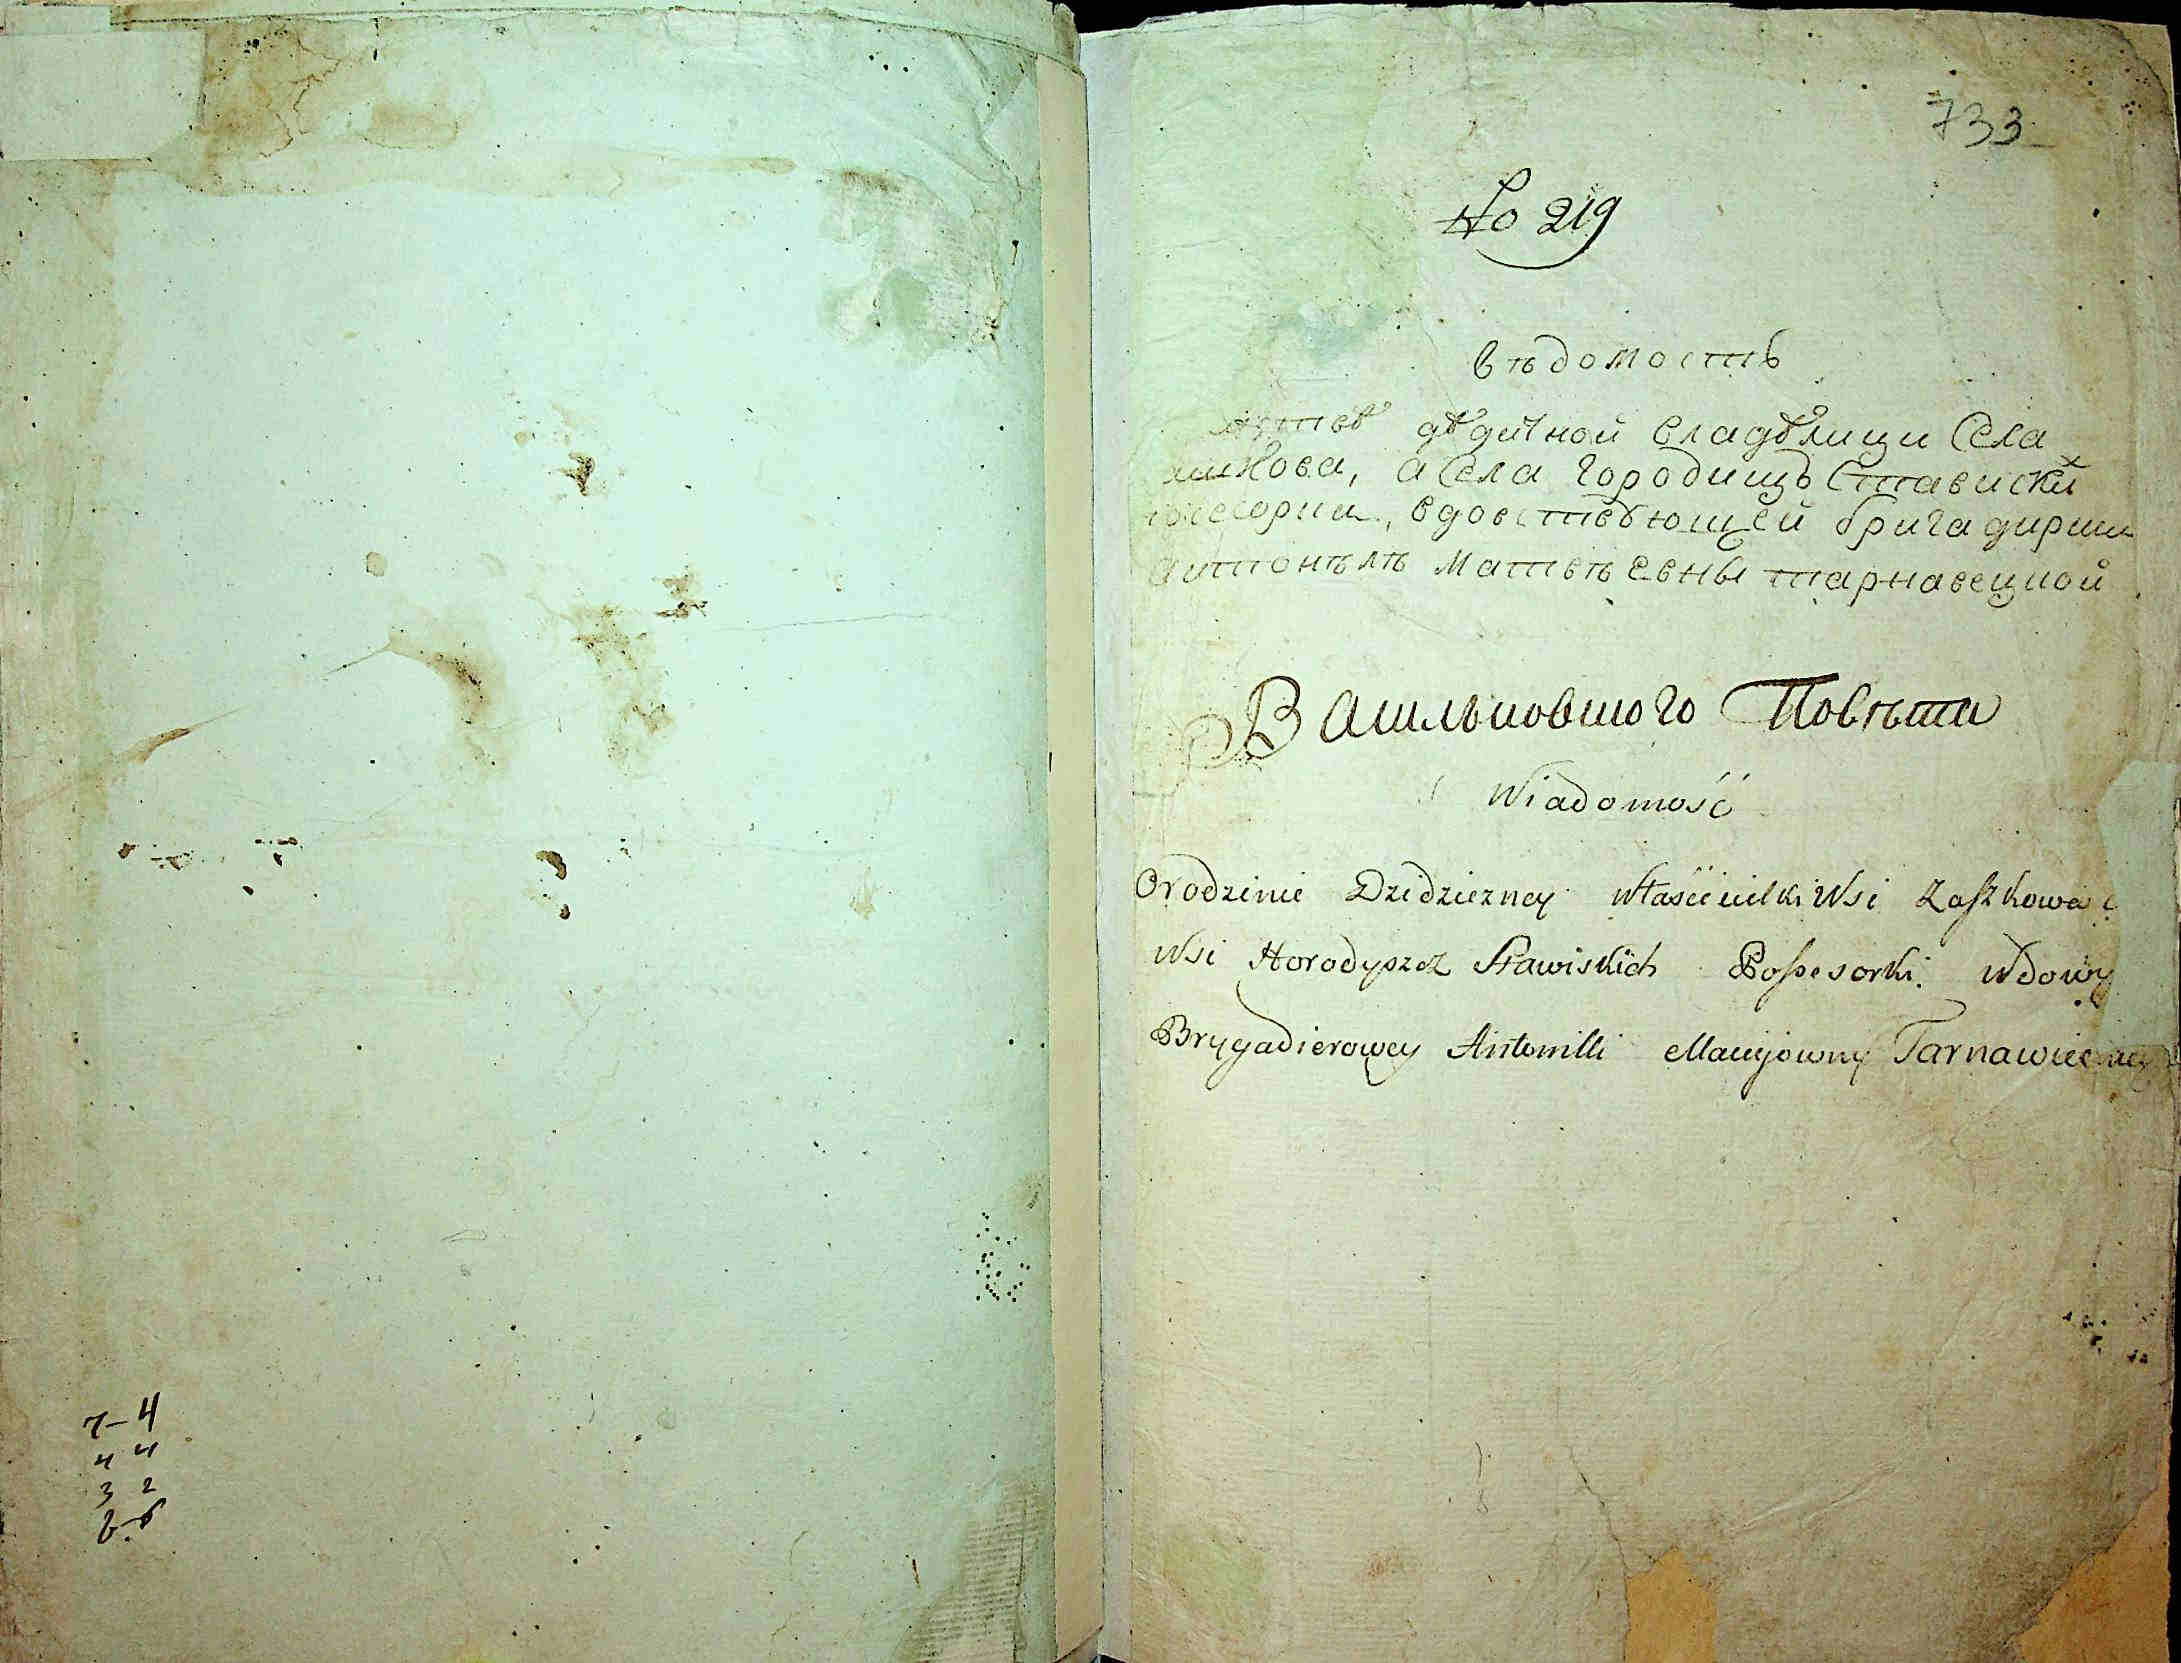 7-4
4 4
3 2
6-6
733
No 219
вѣдомость
дѣдичной владѣлици села
шкова, а села городищъ ставискихъ
вдовствующей бригадирши
антонѣлѣ матвѣевны тарнавецкой
Васильковшого Повѣта
Wiadomość
O rodzinie Dziedziczney właścicielki Wsi Zaszkowa
Wsi Horodyszcz Stawiskich Possesorki wdowy
Brygadierowey Antonilli Maciijowny Tarnawieckiey